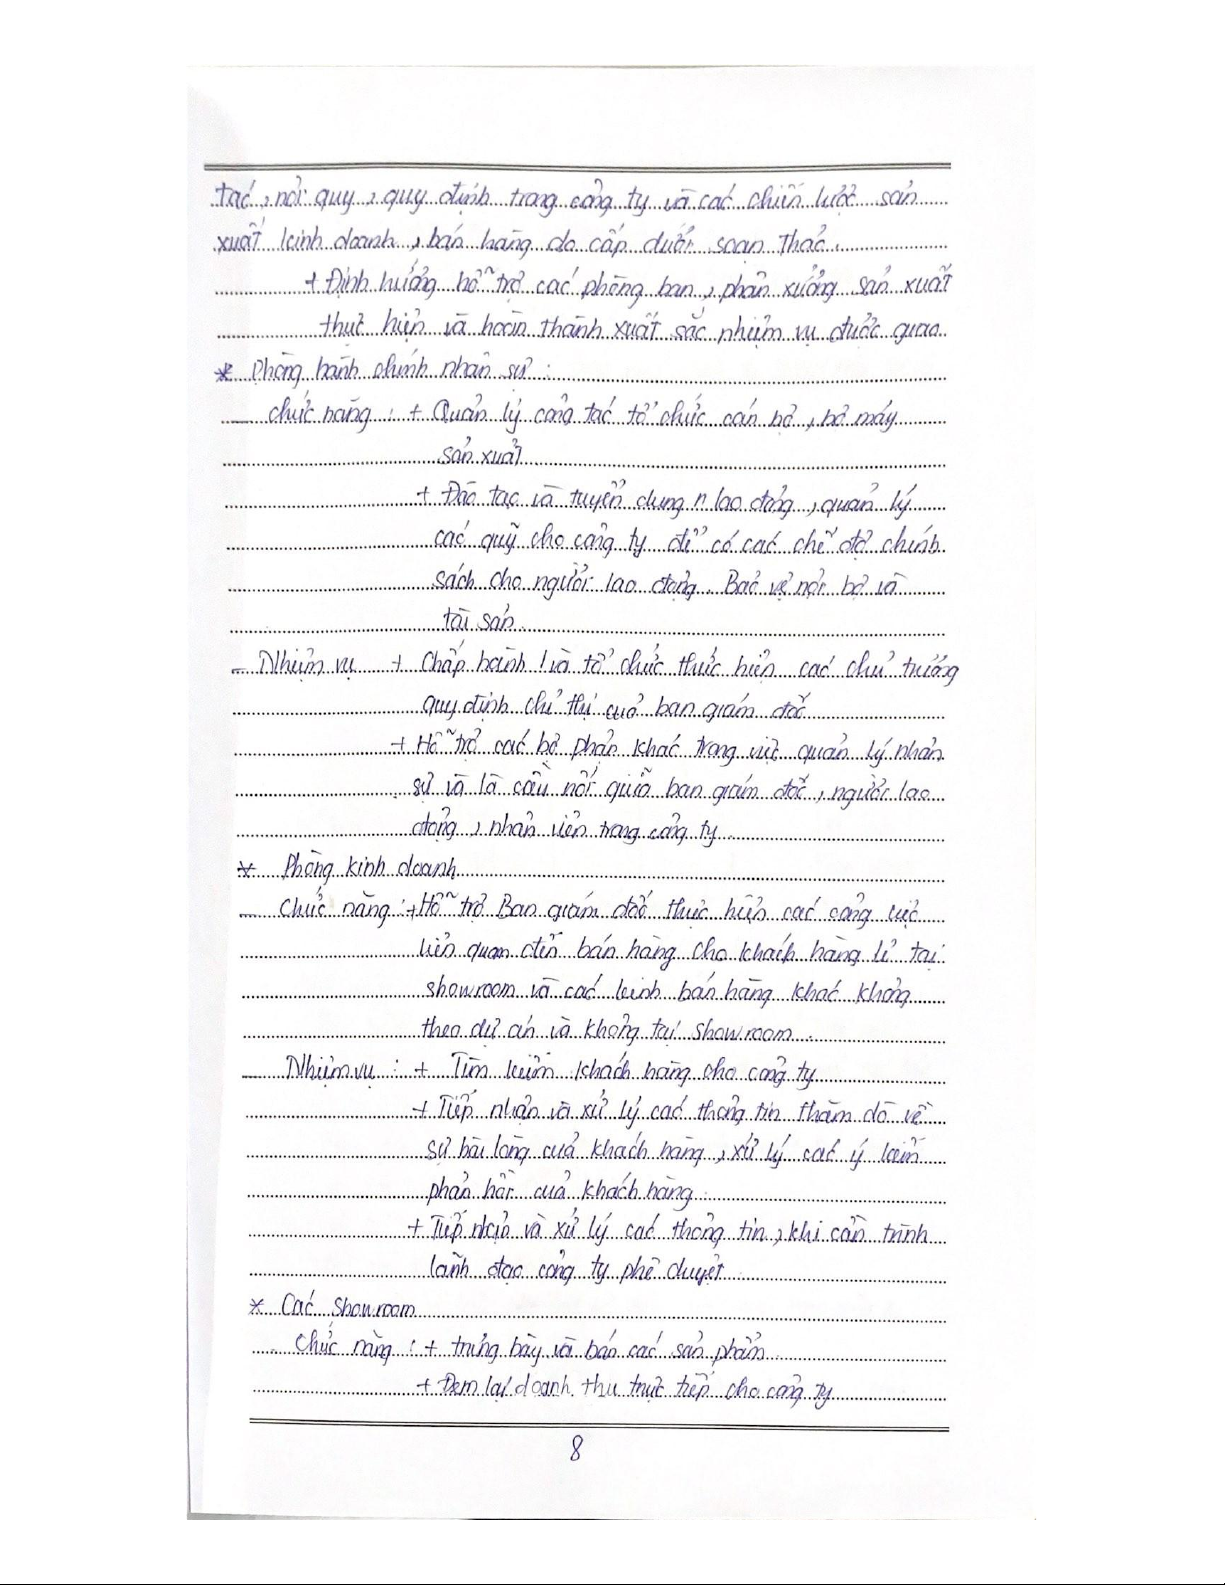 tác, nội quy, quy định trong công ty và các chiến lược sản
xuất kinh doanh, bán hàng do cấp dưới soạn thảo.
+ Định hướng hỗ trợ các phòng ban, phân xưởng sản xuất
thực hiện và hoàn thành xuất sắc nhiệm vụ được giao.
* Phòng hành chính nhân sự :
chức năng : + Quản lý công tác tổ chức cán bộ, bộ máy
sản xuất
+ Đào tạo và tuyển dụng n lao động, quản lý
các quỹ cho công ty để có các chế độ chính
sách cho người lao động. Bảo vệ nội bộ và
tài sản.
- Nhiệm vụ + Chấp hành và tổ chức thức hiện các chủ trương
quy định chỉ thị của ban giám đốc
+ Hỗ trợ các bộ phận khác trong việc quản lý nhân
sự và là cầu nối giữa ban giám đốc, người lao
động, nhân viên trong công ty.
* Phòng kinh doanh
Chức năng : + Hỗ trợ Ban giám đốc thực hiện các công việc
liên quan đến bán hàng cho khách hàng lẻ tại
showroom và các kênh bán hàng khác không
theo dự án và không tại showroom.
Nhiệm vụ : + Tìm kiếm khách hàng cho công ty
+ Tiếp nhận và xử lý các thông tin thăm dò về
sự hài lòng của khách hàng, xử lý các ý kiến
phản hồi của khách hàng.
+ Tiếp nhận và xử lý các thông tin, khi cần trình
lãnh đạo công ty phê duyệt
* Các Showroom
Chức năng : + trưng bày và bán các sản phẩm
+ Đem lại doanh thu trực tiếp cho công ty
8